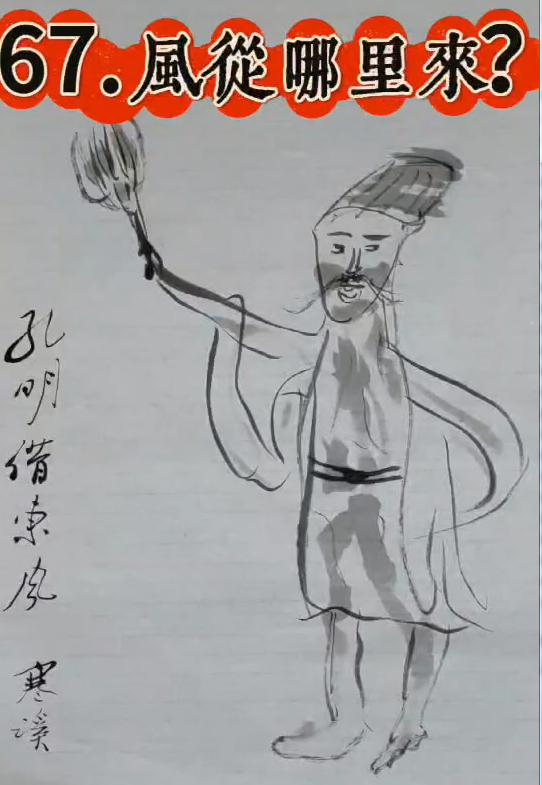 67.風從哪里來?
孔明借東风
寒溪